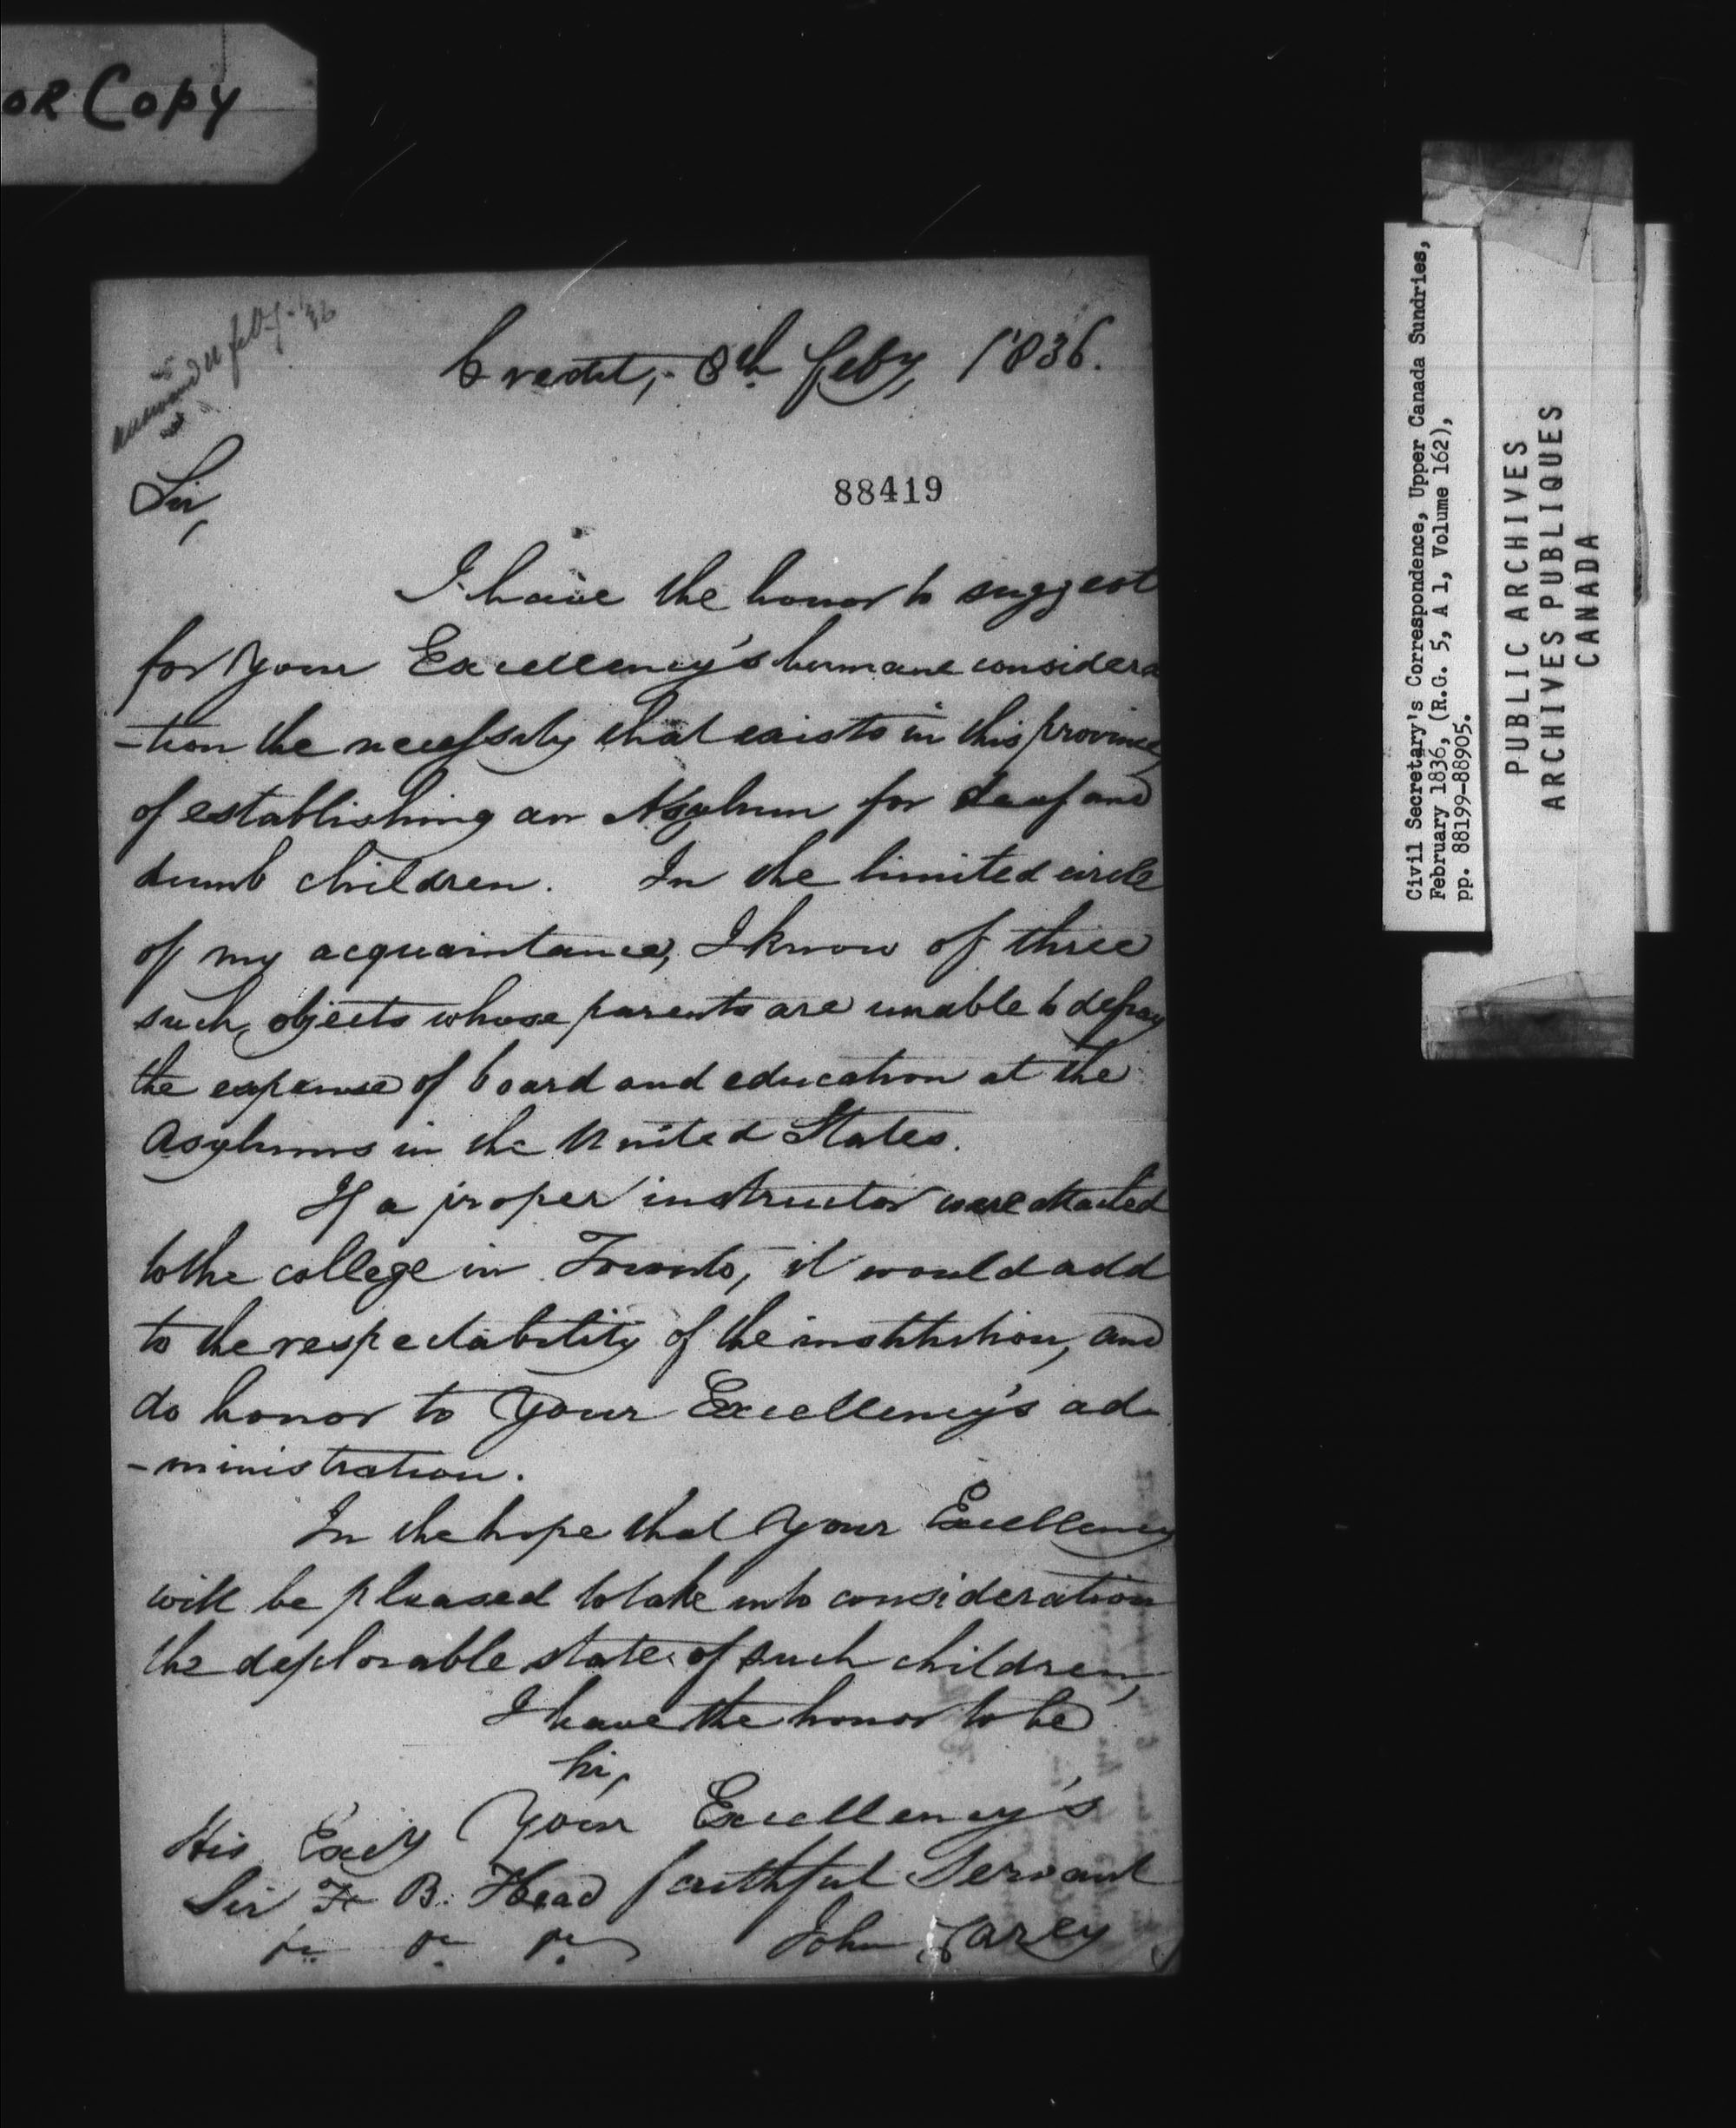 OR Copy
answered 11 feby '36
Credit, 8th feby, 1836.
Sir,
88419
I have the honor to suggest
for Your Excellency's humane considera
-tion the necessity that exists in this province
of establishing an Asylum for deaf and
dumb children. In the limited circle
of my acquaintance, I know of three
such, objects whose parents are unable to defray
the expense of board and education at the
Asylums in the United States.
If a proper instructor were attached
to the college in Toronto, it would add
to the respectability of the institution, and
do honor to Your Excellency's ad-
-ministration.
In the hope that Your Excellency
will be pleased to take into consideration
the deplorable state of such children,
I have the honor to be
Sir,
Your Excellency's
faithful Servant
John Carey
His Excy
Sir F. B. Head
Civil Secretary's Correspondence, Upper Canada Sundries,
February 1836, (R.G. 5, A 1, Volume 162),
pp. 88199-88905.
PUBLIC ARCHIVES
ARCHIVES PUBLIQUES
CANADA